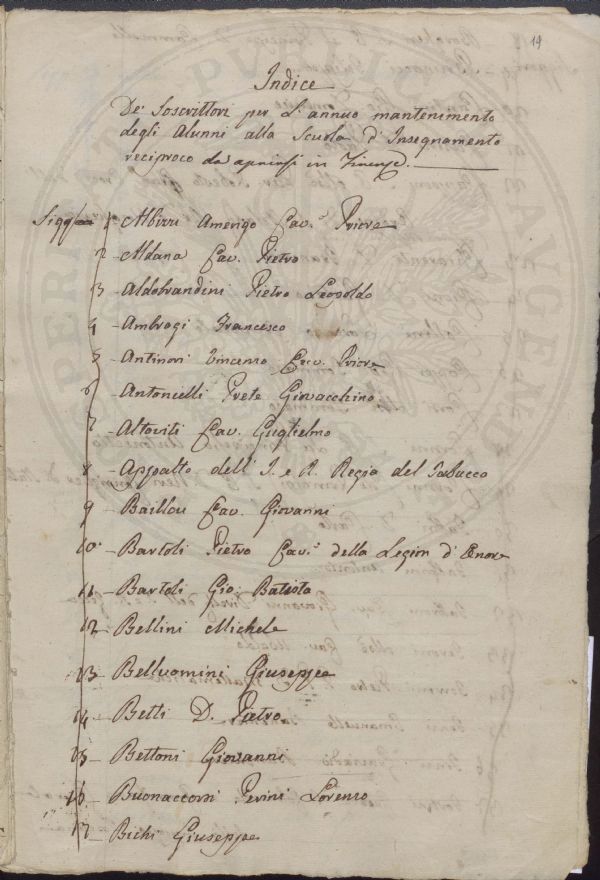 19
Indice
De' Soscrittori per l'annuo mantenimento
degli Alunni alla Scuola d'Insegnamento
reciproco da aprirsi in Firenze.
Sigg.
1 - Albizzi Amerigo Cav.e Priore
2 - Aldana Cav. Pietro
3 - Aldobrandini Pietro Leopoldo
4 - Ambrogi Francesco
5 - Antinori Vincenzo Cav. Priore
6 - Antoncelli Prete Giovacchino
7 - Altoviti Cav. Guglielmo
8 - Appalto dell' I. e R. Regia del Tabacco
9 - Baillou Cav. Giovanni
10 - Bartoli Pietro Cav.e della Legion d'Onore
11 - Bartoli Gio: Batista
12 - Bellini Michele
13 - Belluomini Giuseppe
14 - Betti D. Pietro
15 - Bettoni Giovanni
16 - Buonaccorsi Perini Lorenzo
17 - Bichi Giuseppe